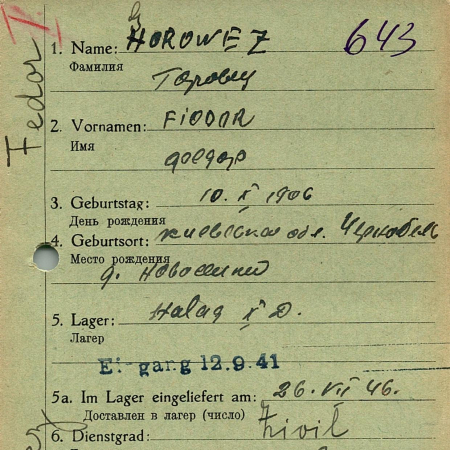 643
G
1. Name: HOROWEZ
Фамилия
Горовец
Fedor
2. Vornamen: FiODOR
Имя
Федор
3. Geburtstag: 10. X 1906
День рождения
4. Geburtsort: Киевская обл. Чернобыль
Место рождения
д.
5. Lager: X D.
Лагер
Eingang 12.9.41
5a. Im Lager eingeliefert am: 26. VII 46.
Доставлен в лагер (число)
6. Dienstgrad: Zivil